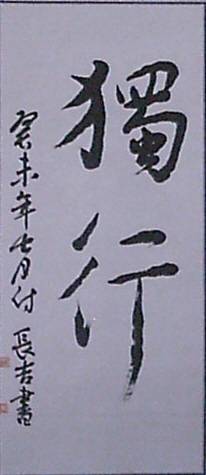 獨行
癸未年七月付 長吉書